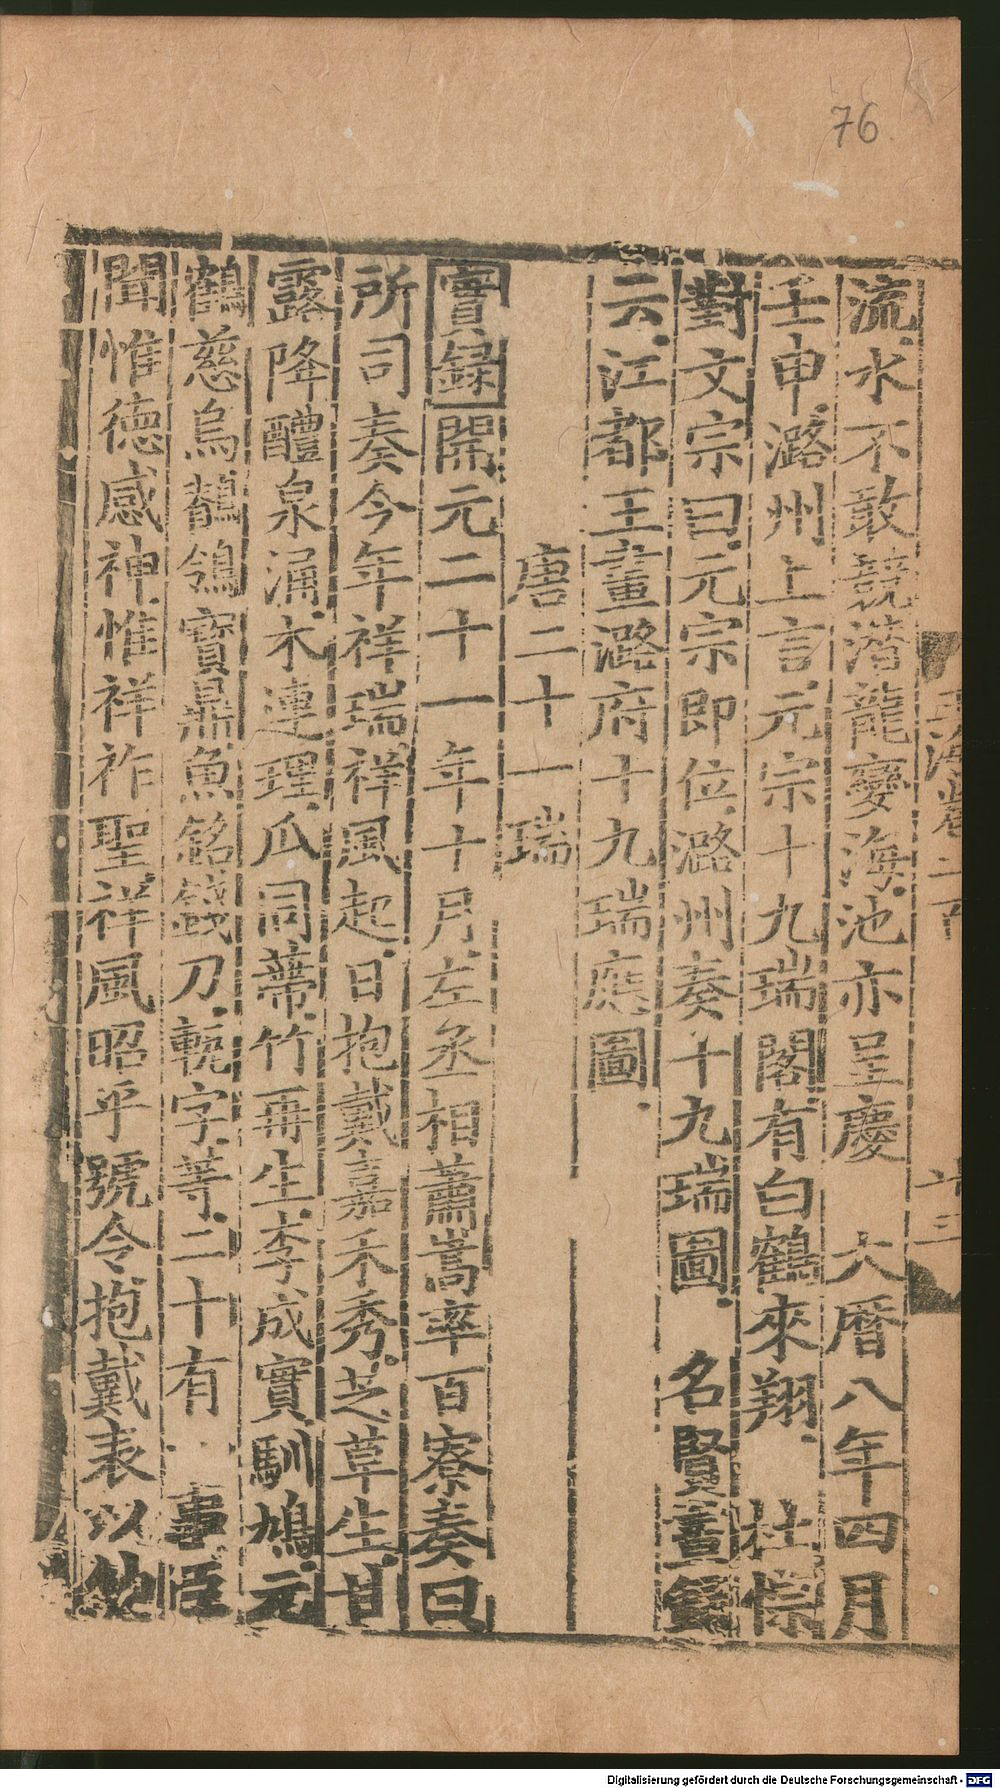 76
流水不敢競潜龍變海池亦呈慶　大曆八年四月
壬申潞州上言元宗十九瑞閣有白鶴來翔　杜悰
對文宗曰元宗即位潞州奏十九瑞圖　名賢畫錄
云江都王畫潞府十九瑞應圖
唐二十一瑞
實錄開元二十一年十月左丞相蕭嵩率百寮奏曰
所司奏今年祥瑞祥風起日抱戴嘉禾秀芝草生甘
露降醴泉涌木連理瓜同蔕竹再生李成實馴鳩元
鶴慈烏鶺鴒寶鼎魚銘錢刀甎字等二十有　事臣
聞惟德感神惟祥祚聖祥風昭乎號令抱戴表以
Digitalisierung gefördert durch die Deutsche Forschungsgemeinschaft - DFG